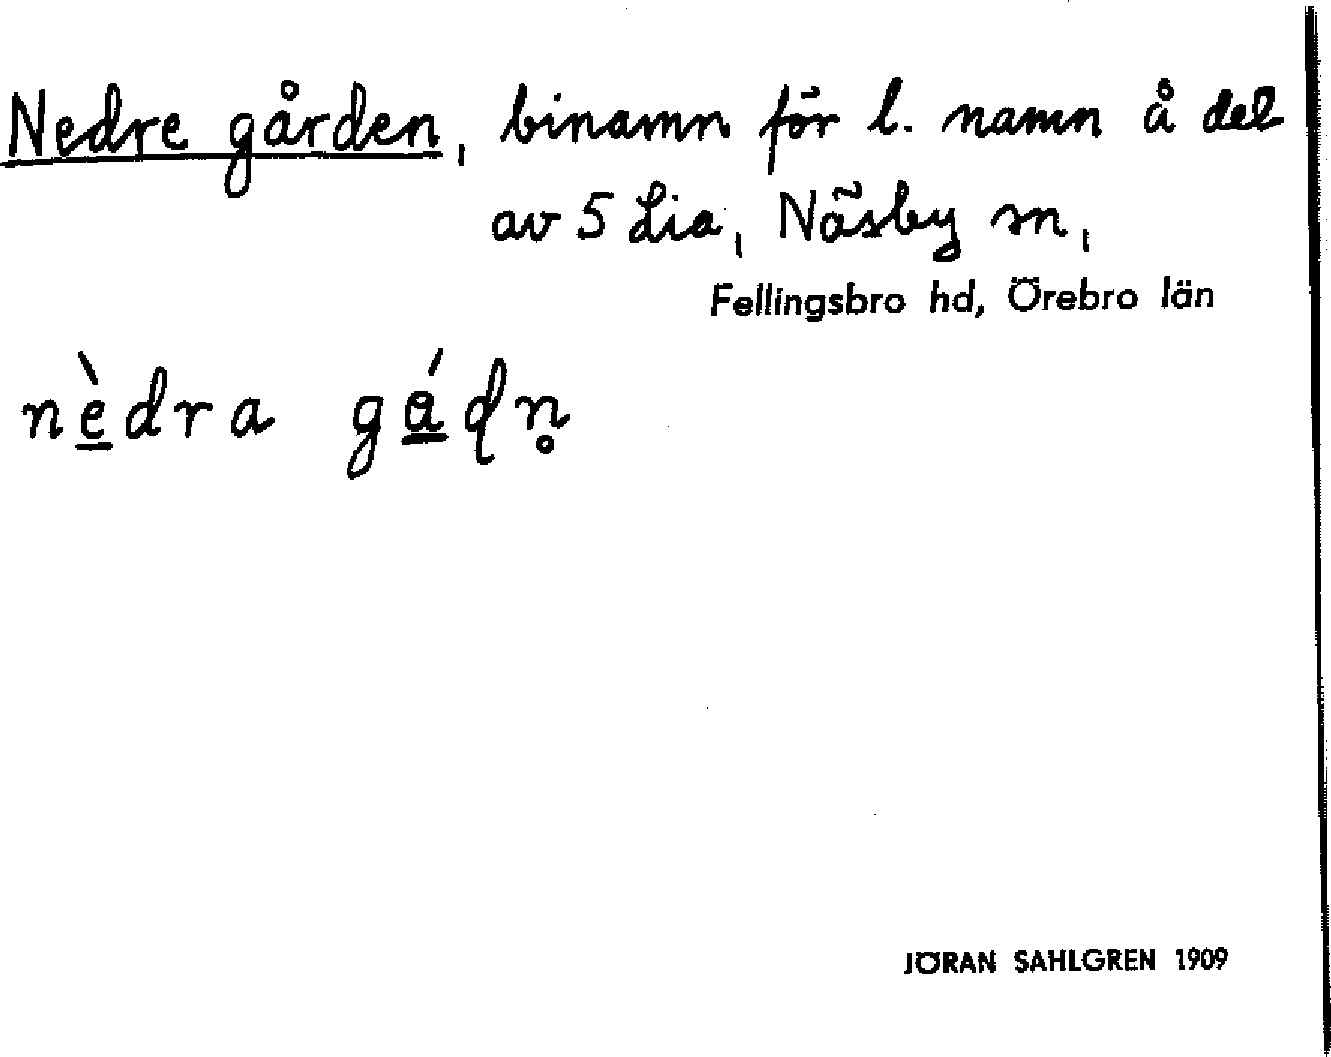 Nedre gården, binamn för l. namn å del
av 5 Lia, Näsby sn,
Fellingsbro hd, Örebro län
nèdra
JÖRAN SAHLGREN 1909